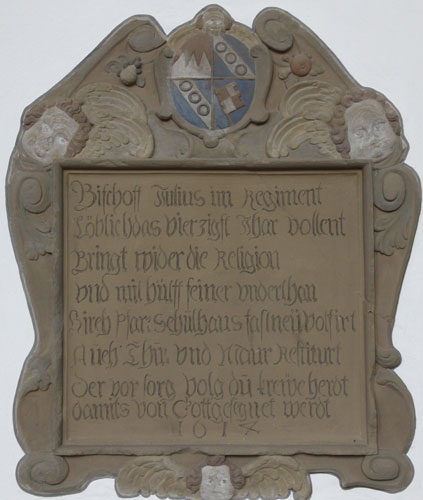 Bischoff Julius im Regiment
Löblich das vierzigst Jhar vollent
Bringt wider die Religion
vnd mit hülff seiner vnderthan
Kirch Pfar: Schulhaus fast neü volfirt
Auch Thür vnd Maur Restiturt
Der vor sorg volg dü herdt
damits von Gott gesegnet werdt